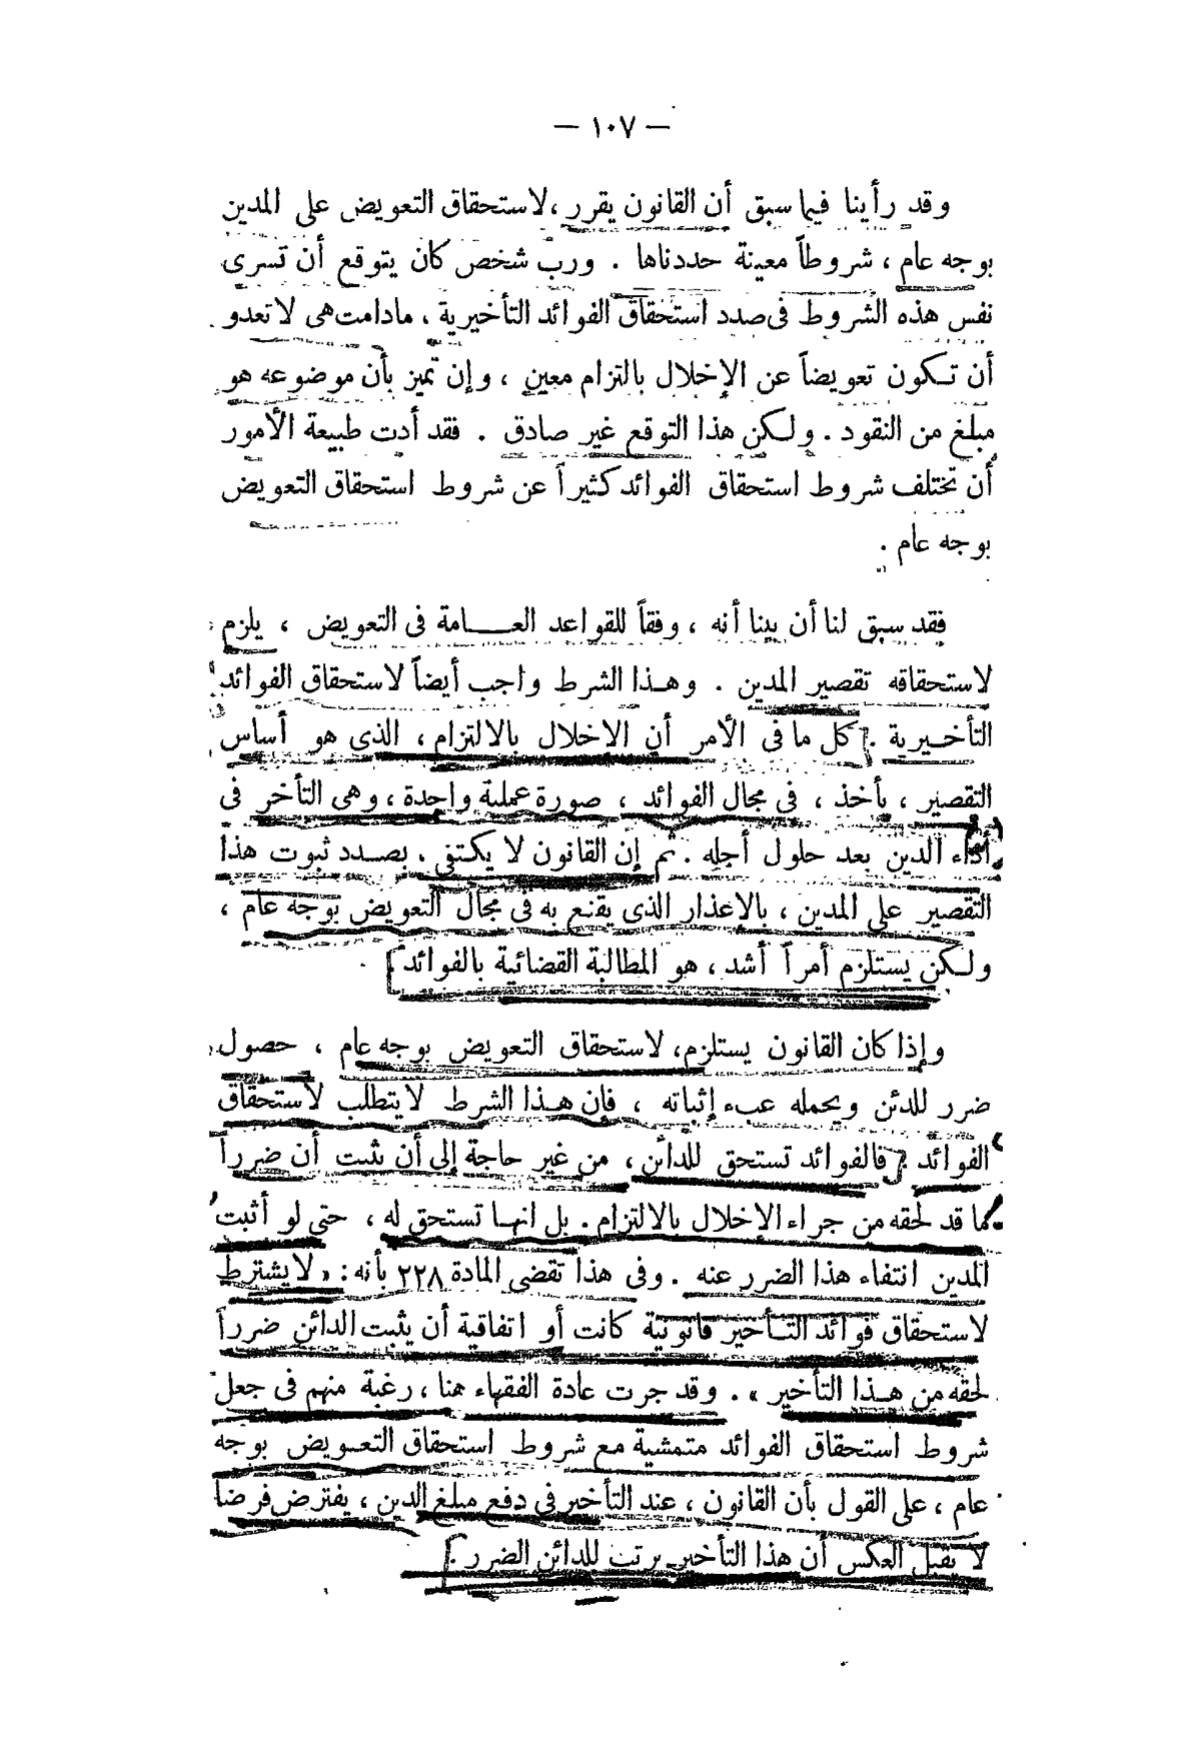 — ١٠٧ —
وقد رأينا فيما سبق أن القانون يقرر، لاستحقاق التعويض على المدين
بوجه عام ، شروطاً معينة حددناها . ورب شخص كان يتوقع أن تسرى
نفس هذه الشروط فى صدد استحقاق الفوائد التأخيرية ، مادامت هى لا تعدو
أن تكون تعويضاً عن الإخلال بالتزام معين ، وإن تميز بأن موضوعه هو
مبلغ من النقود . ولكن هذا التوقع غير صادق . فقد أدت طبيعة الأمور
أن تختلف شروط استحقاق الفوائد كثيراً عن شروط استحقاق التعويض
بوجه عام .
فقد سبق لنا أن بينا أنه ، وفقاً للقواعد العامة فى التعويض ، يلزم
لاستحقاقه تقصير المدين . وهذا الشرط واجب أيضاً لاستحقاق الفوائد
التأخيرية . كل ما فى الأمر أن الاخلال بالالتزام ، الذى هو أساس
التقصير ، يأخذ ، فى مجال الفوائد ، صورة عملية واحدة ، وهى التأخر فى
أداء الدين بعد حلول أجله . ثم إن القانون لا يكتفى . بصدد ثبوت هذا
التقصير على المدين ، بالإعذار الذى يقنع به فى مجال التعويض بوجه عام ،
ولكن يستلزم أمراً أشد ، هو المطالبة القضائية بالفوائد .
وإذا كان القانون يستلزم، لاستحقاق التعويض بوجه عام ، حصول
ضرر للدئن ويحمله عبء إثباته ، فإن هذا الشرط لا يتطلب لاستحقاق
الفوائد . فالفوائد تستحق للدائن ، من غير حاجة إلى أن يثبت أن ضرراً
ما قد لحقه من جراء الإخلال بالالتزام . بل انها تستحق له ، حتى لو أثبت
المدين انتفاء هذا الضرر عنه . وفى هذا تقضى المادة ٢٢٨ بأنه : « لا يشترط
لاستحقاق فوائد التأخير قانونية كانت أو اتفاقية أن يثبت الدائن ضرراً
لحقه من هذا التأخير » . وقد جرت عادة الفقهاء هنا ، رغبة منهم فى جعل
شروط استحقاق الفوائد متمشية مع شروط استحقاق التعويض بوجه
عام ، على القول بأن القانون ، عند التأخير فى دفع مبلغ الدين ، يفترض فرضا
لا يقبل العكس أن هذا التأخير يرتب للدائن الضرر .